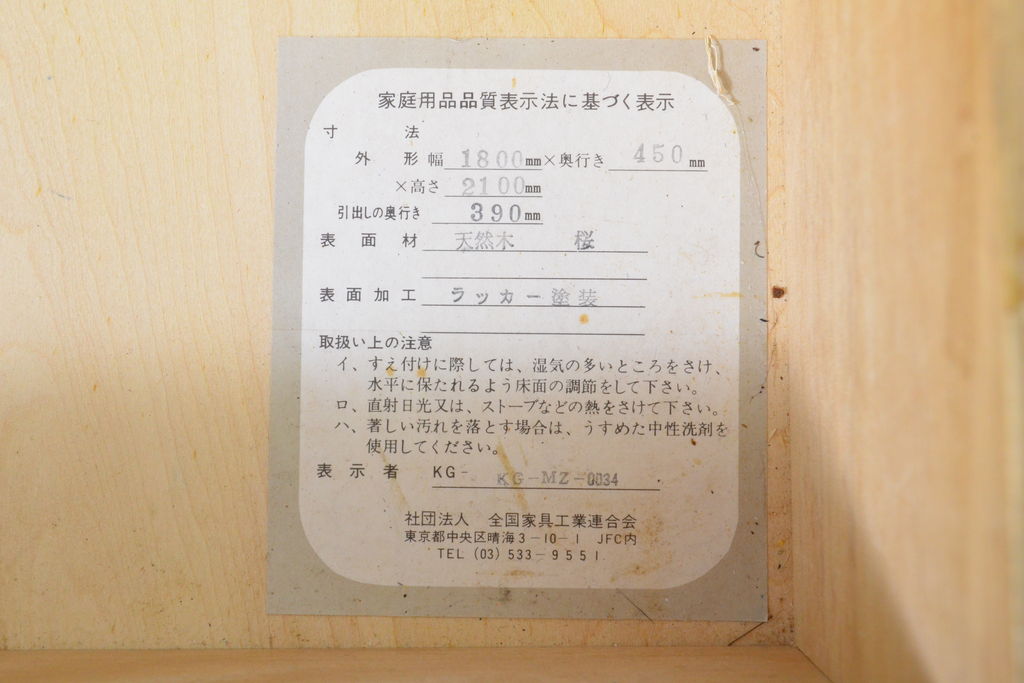 家庭用品品質表示法に基づく表示
寸法
外形 幅 1800mm×奥行き 450mm
×高さ 2100mm
引出しの奥行き 390mm
表面材 天然木 桜
表面加工 ラッカー塗装
取扱い上の注意
イ、すえ付けに際しては、湿気の多いところをさけ、
水平に保たれるよう床面の調節をして下さい。
ロ、直射日光又は、ストーブなどの熱をさけて下さい。
ハ、著しい汚れを落とす場合は、うすめた中性洗剤を
使用してください。
表示者 KG- KG-MZ-0034
社団法人 全国家具工業連合会
東京都中央区晴海3-10-1 JFC内
TEL (03) 533-9551